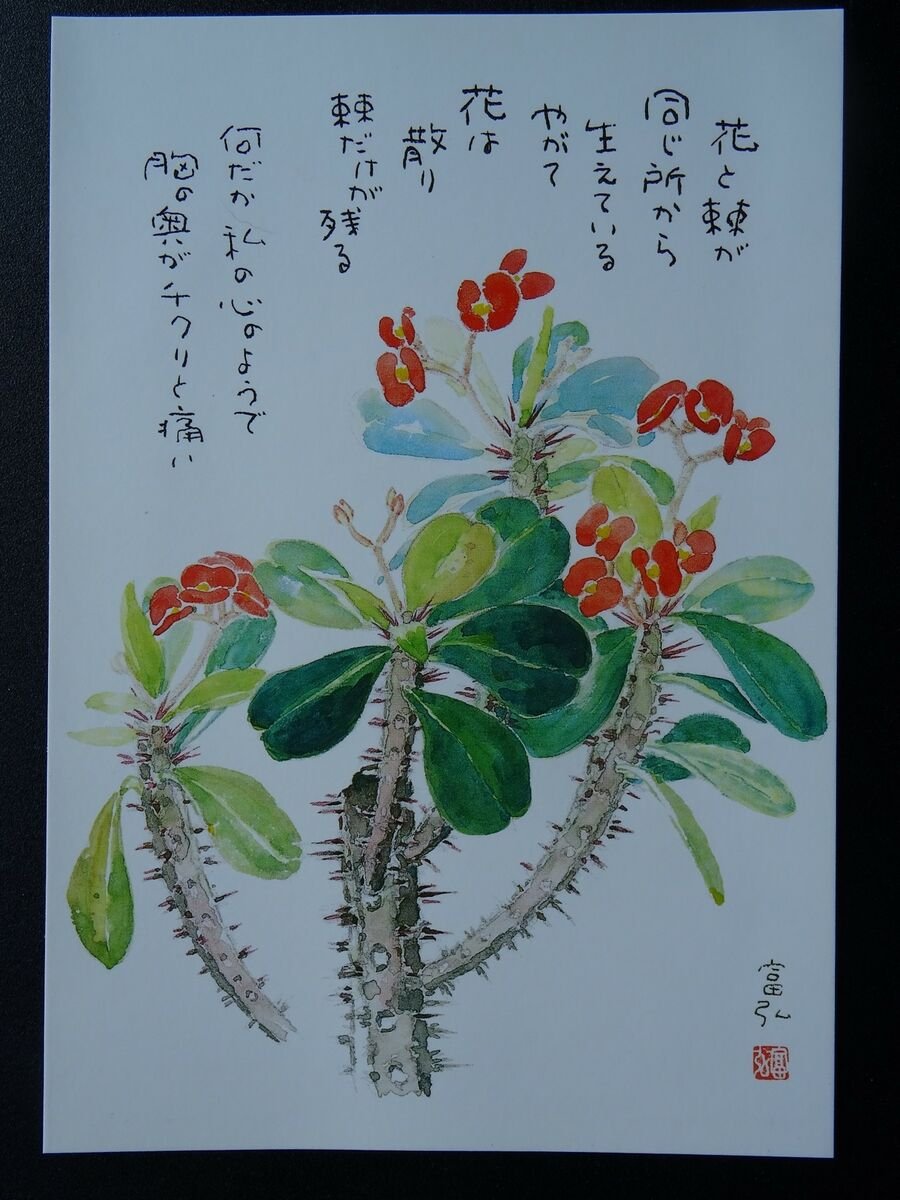 花と棘が
同じ所から
生えている
やがて
花は
散り
棘だけが残る
何だか私の心のようで
胸の奥がチクリと痛い
富弘
富弘